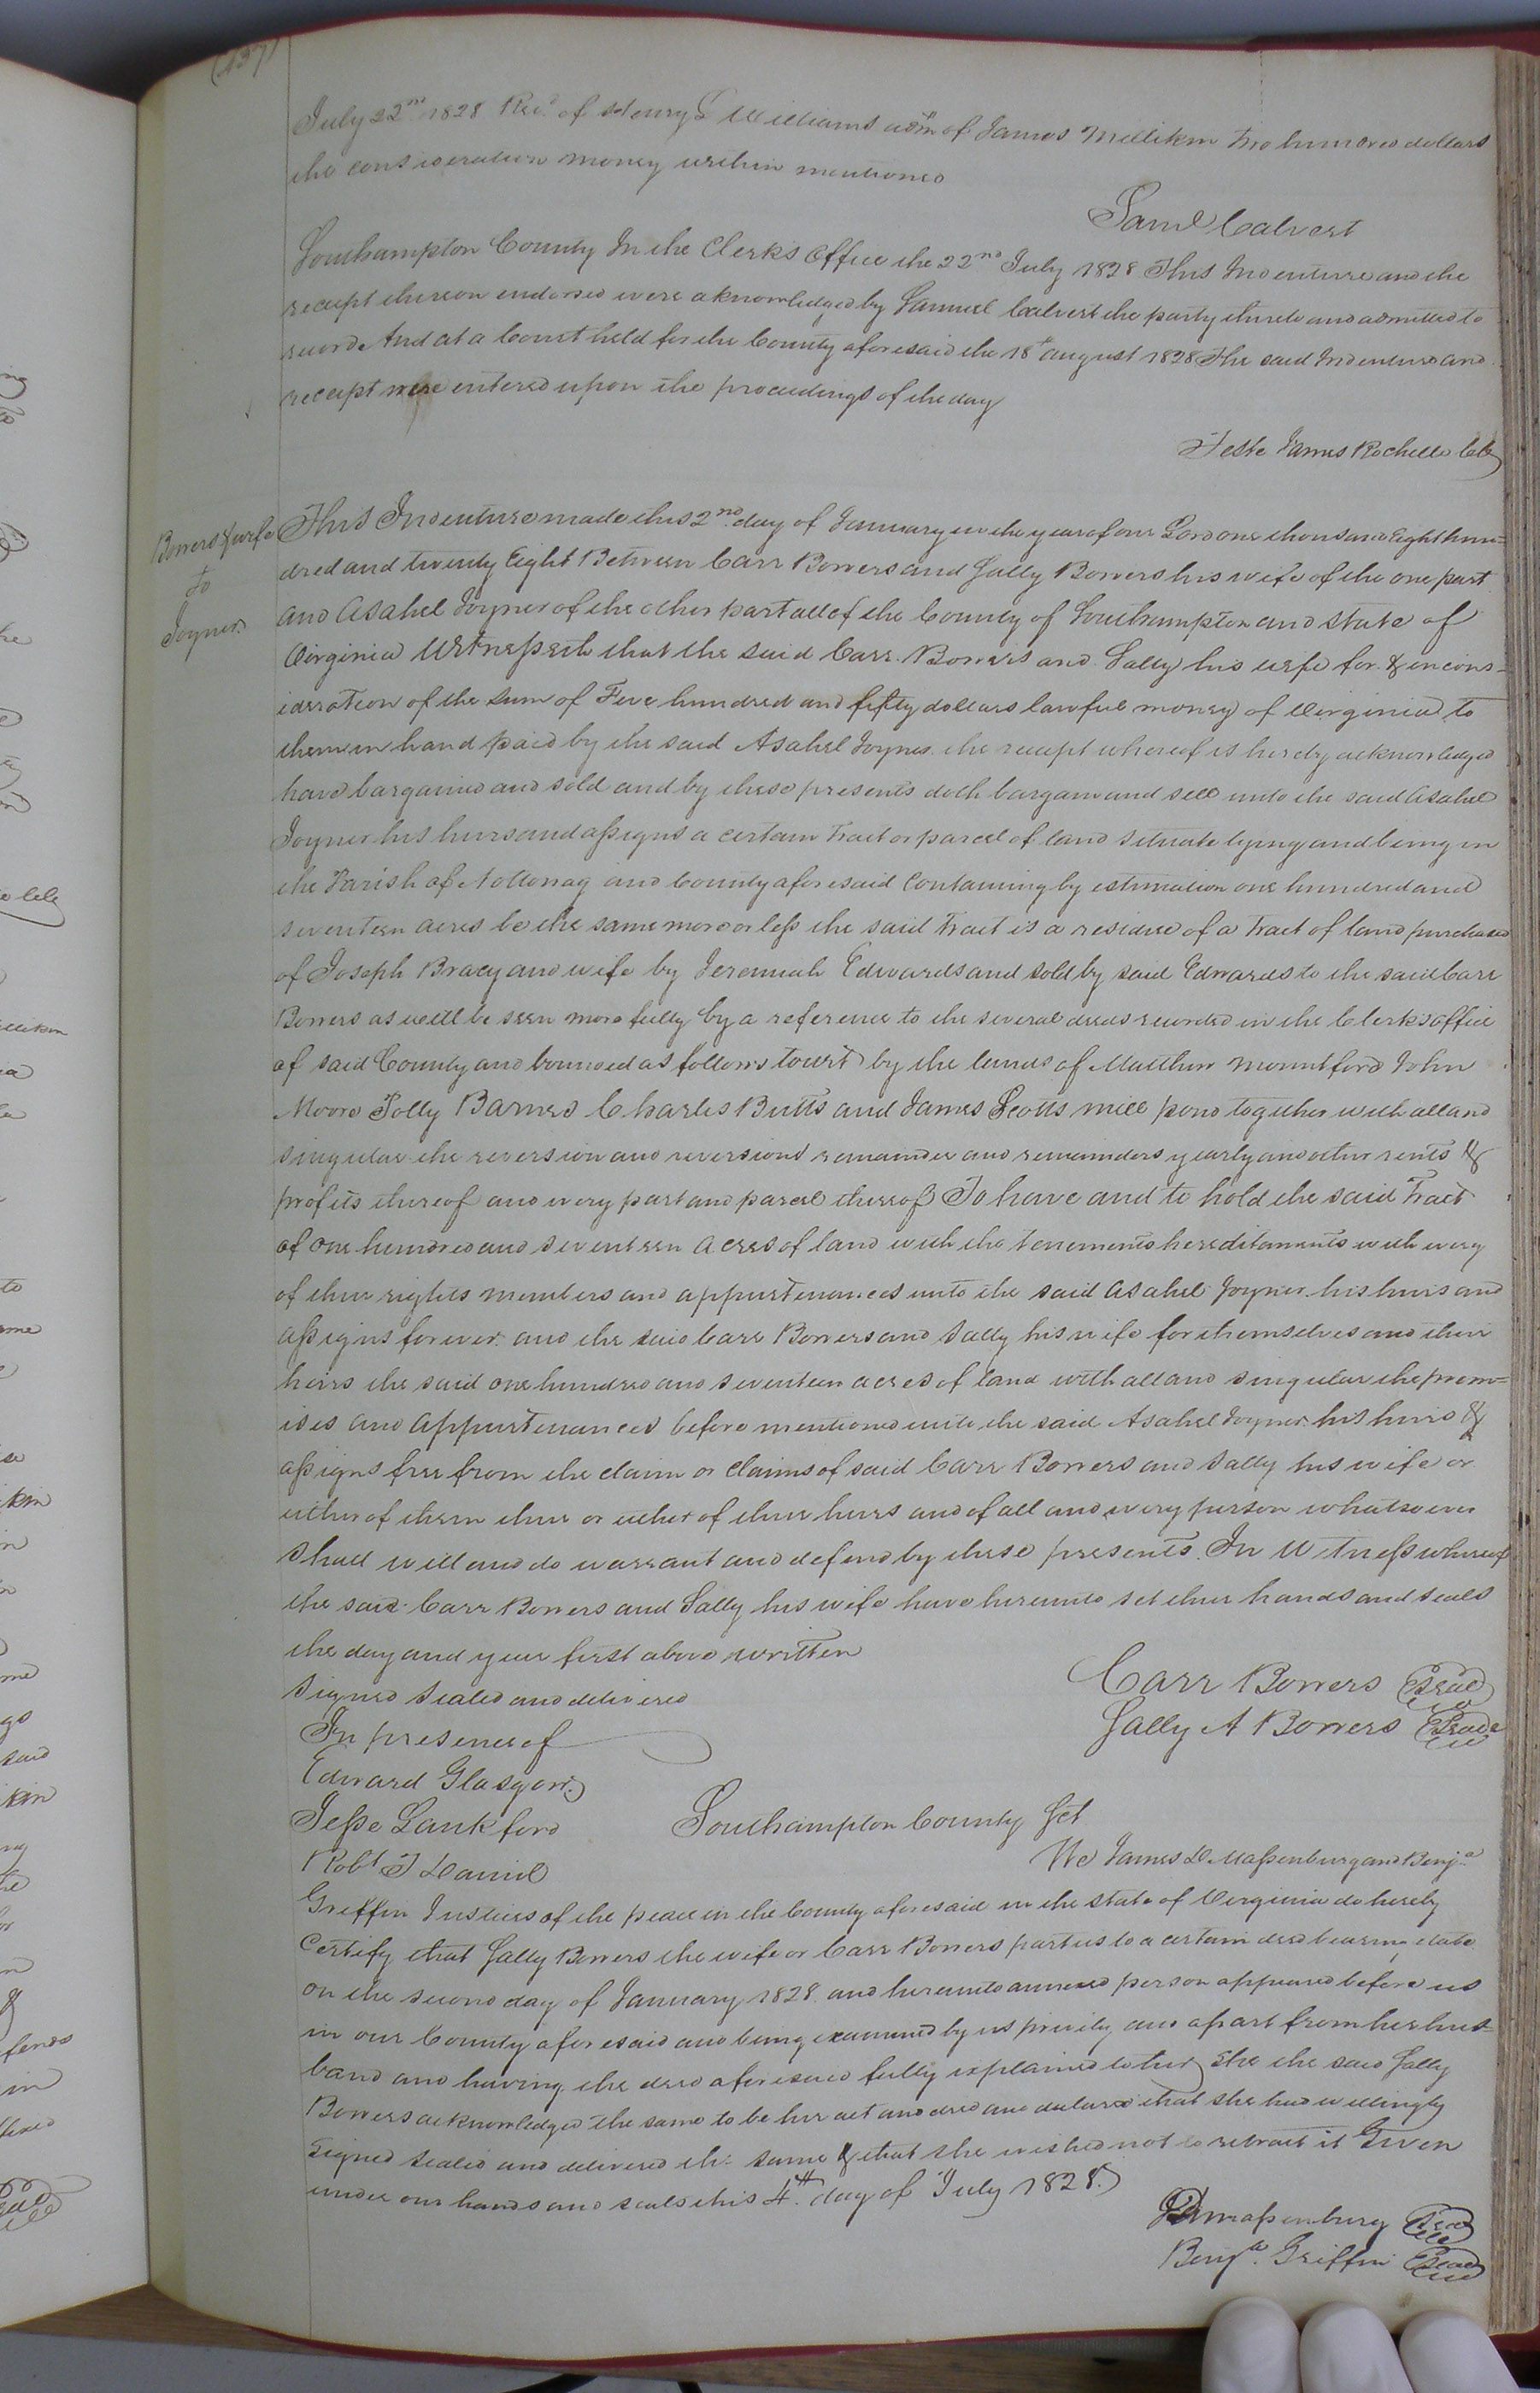 (137)
July 22nd 1828 Recd of Henry L Williams adm of James Millikin two hundred dollars
the consideration money within mentioned
Saml Calvert
Southampton County In the Clerks Office the 22nd July 1828 This Indenture and the
receipt thereon endorsed were aknowledged by Samuel Calvert the party thereto and admitted to
record And at a Court held for the County aforesaid the 18th august 1828 The said Indenture and
receipt were entered upon the proceedings of the day
Teste James Rochelle Clk
Bowers & wife
To
Joyner
This Indenture made this 2nd day of January in the year of our Lord one thousand Eight hun=
dred and twenty Eight Between Carr Bowers and Sally Bowers his wife of the one part
and Asahel Joyner of the other part all of the County of Southampton and State of
Virginia Witnesseth that the said Carr Bowers and Sally his wife for & in cons=
ideration of the sum of Five hundred and fifty dollars lawful money of Virginia to
them in hand paid by the said Asahel Joyner the receipt whereof is hereby acknowledged
have bargained and sold and by these presents doth bargain and sell unto the said Asahel
Joyner his heirs and assigns a certain Tract or parcel of land situate lying and being in
the Parish of Nottoway and County aforesaid Containing by estimation one hundred and
seventeen acres be the same more or less the said Tract is a residue of a Tract of land purchased
of Joseph Bracy and wife by Jeremiah Edwards and sold by said Edwards to the said Carr
Bowers as will be seen more fully by a reference to the several deeds recorded in the Clerk's office
of said County and bounded as follows towit by the lands of Matthew Mountford John
Moore Polly Barnes Charles Butts and James Scotts mill pond together with all and
singular the reversion and reversions remainder and remainders yearly and other rents &
profits thereof and every part and parcel thereof To have and to hold the said Tract
of one hundred and seventeen acres of land with the tenements hereditaments with every
of their rights members and appurtenances unto the said Asahel Joyner his heirs and
assigns forever and the said Carr Bowers and Sally his wife for themselves and their
heirs the said one hundred and seventeen acres of land with all and singular the prem=
ises and appurtenances before mentioned unto the said Asahel Joyner his heirs &
assigns free from the claim or claims of said Carr Bowers and Sally his wife or
either of them their or either of their heirs and of all and every person whatsoever
shall will and do warrant and defend by these presents. In Witness whereof
the said Carr Bowers and Sally his wife have hereunto set their hands and seals
the day and year first above written
Signed Sealed and delivered
In presence of
Edward Glasgow
Jesse Lankford
Robt T Daniel
Carr Bowers Seal
Sally A Bowers Seal
Southampton County Sct
We James D Massenburg and Benja
Griffin Justices of the peace in the County aforesaid in the state of Virginia do hereby
Certify that Sally Bowers the wife or Carr Bowers parties to a certain deed bearing date
on the second day of January 1828 and hereunto annexed person appeared before us
in our County aforesaid and being examined by us privily and apart from her hus=
band and having the deed aforesaid fully explained to her She the said Sally
Bowers acknowledged the same to be her act and deed and declared that she had willingly
signed sealed and delivered the same & that she wished not to retract it Given
under our hands and seals this 4th day of July 1828.
JD Massenburg Seal
Benja. Griffin Seal